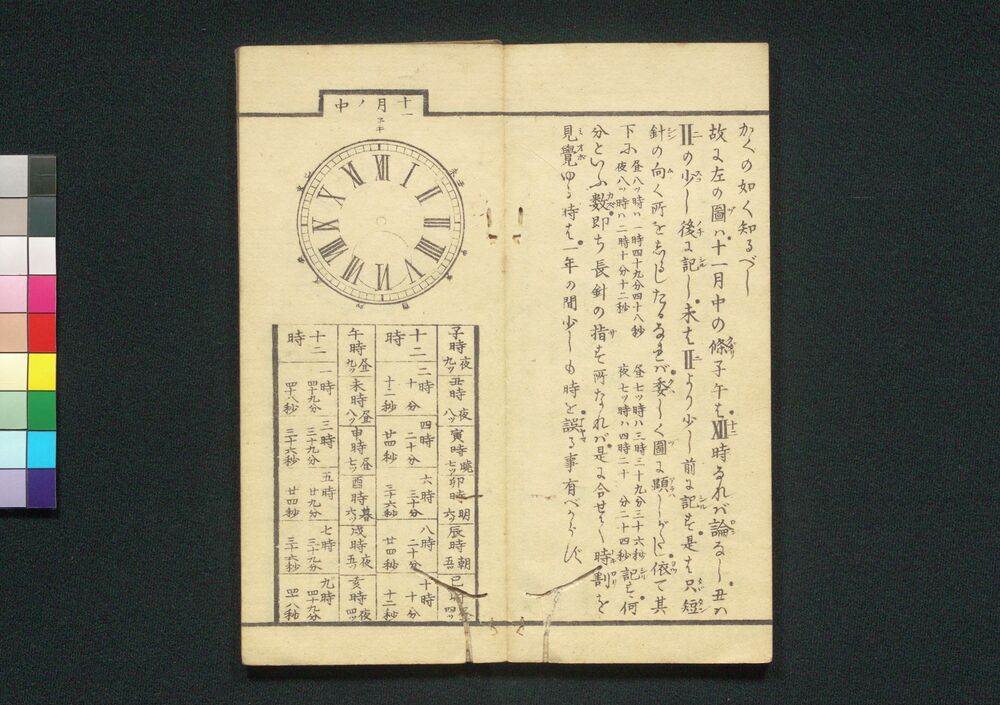 かくの如く知るべし
故に左の圖ハ十一月中の條子午はⅫ時なれバ論なし丑ハ
Ⅱの少し後に記し未はⅡより少し前に記す是は只短
針の向く所をしるしたるなれバ委しく圖に顯しがたし依て其
下に
昼八ッ時ハ一時四十九分四十八秒 昼七ッ時ハ三時三十九分三十六秒
夜八ッ時ハ二時十分十二秒 夜七ッ時ハ四時二十分二十四秒
記す何
分といふ数即ち長針の指す所なれバ是に合せて時割を
見覺ゆる時は一年の間少しも時を誤る事有べからず
十一月ノ中
子午
Ⅻ Ⅰ Ⅱ Ⅲ ⅢⅠ Ⅴ Ⅵ Ⅶ Ⅷ Ⅸ Ⅹ Ⅺ
子時 夜九ッ 丑時 夜八ッ 寅時 暁七ッ 卯時 明六ッ 辰時 朝五ッ 巳時 昼四ッ
十二時 二時十分十二秒 四時二十分廿四秒 六時三十分三十六秒 八時二十分廿四秒 十時十分十二秒
午時 昼九ッ 未時 昼八ッ 申時 昼七ッ 酉時 暮六ッ 戌時 夜五ッ 亥時 夜四ッ
十二時 一時四十九分四十八秒 三時三十九分三十六秒 五時廿九分廿四秒 七時三十九分三十六秒 九時四十九分四十八秒